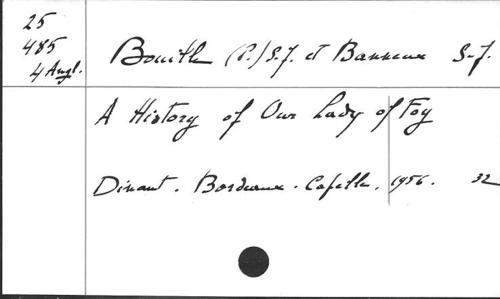 25
485
4 Angl.
Bouille (P.) S.J. et Banneux S.J.
A History of Our Lady of Foy
Dinant. Bordeaux-Capelle. 1956. 32